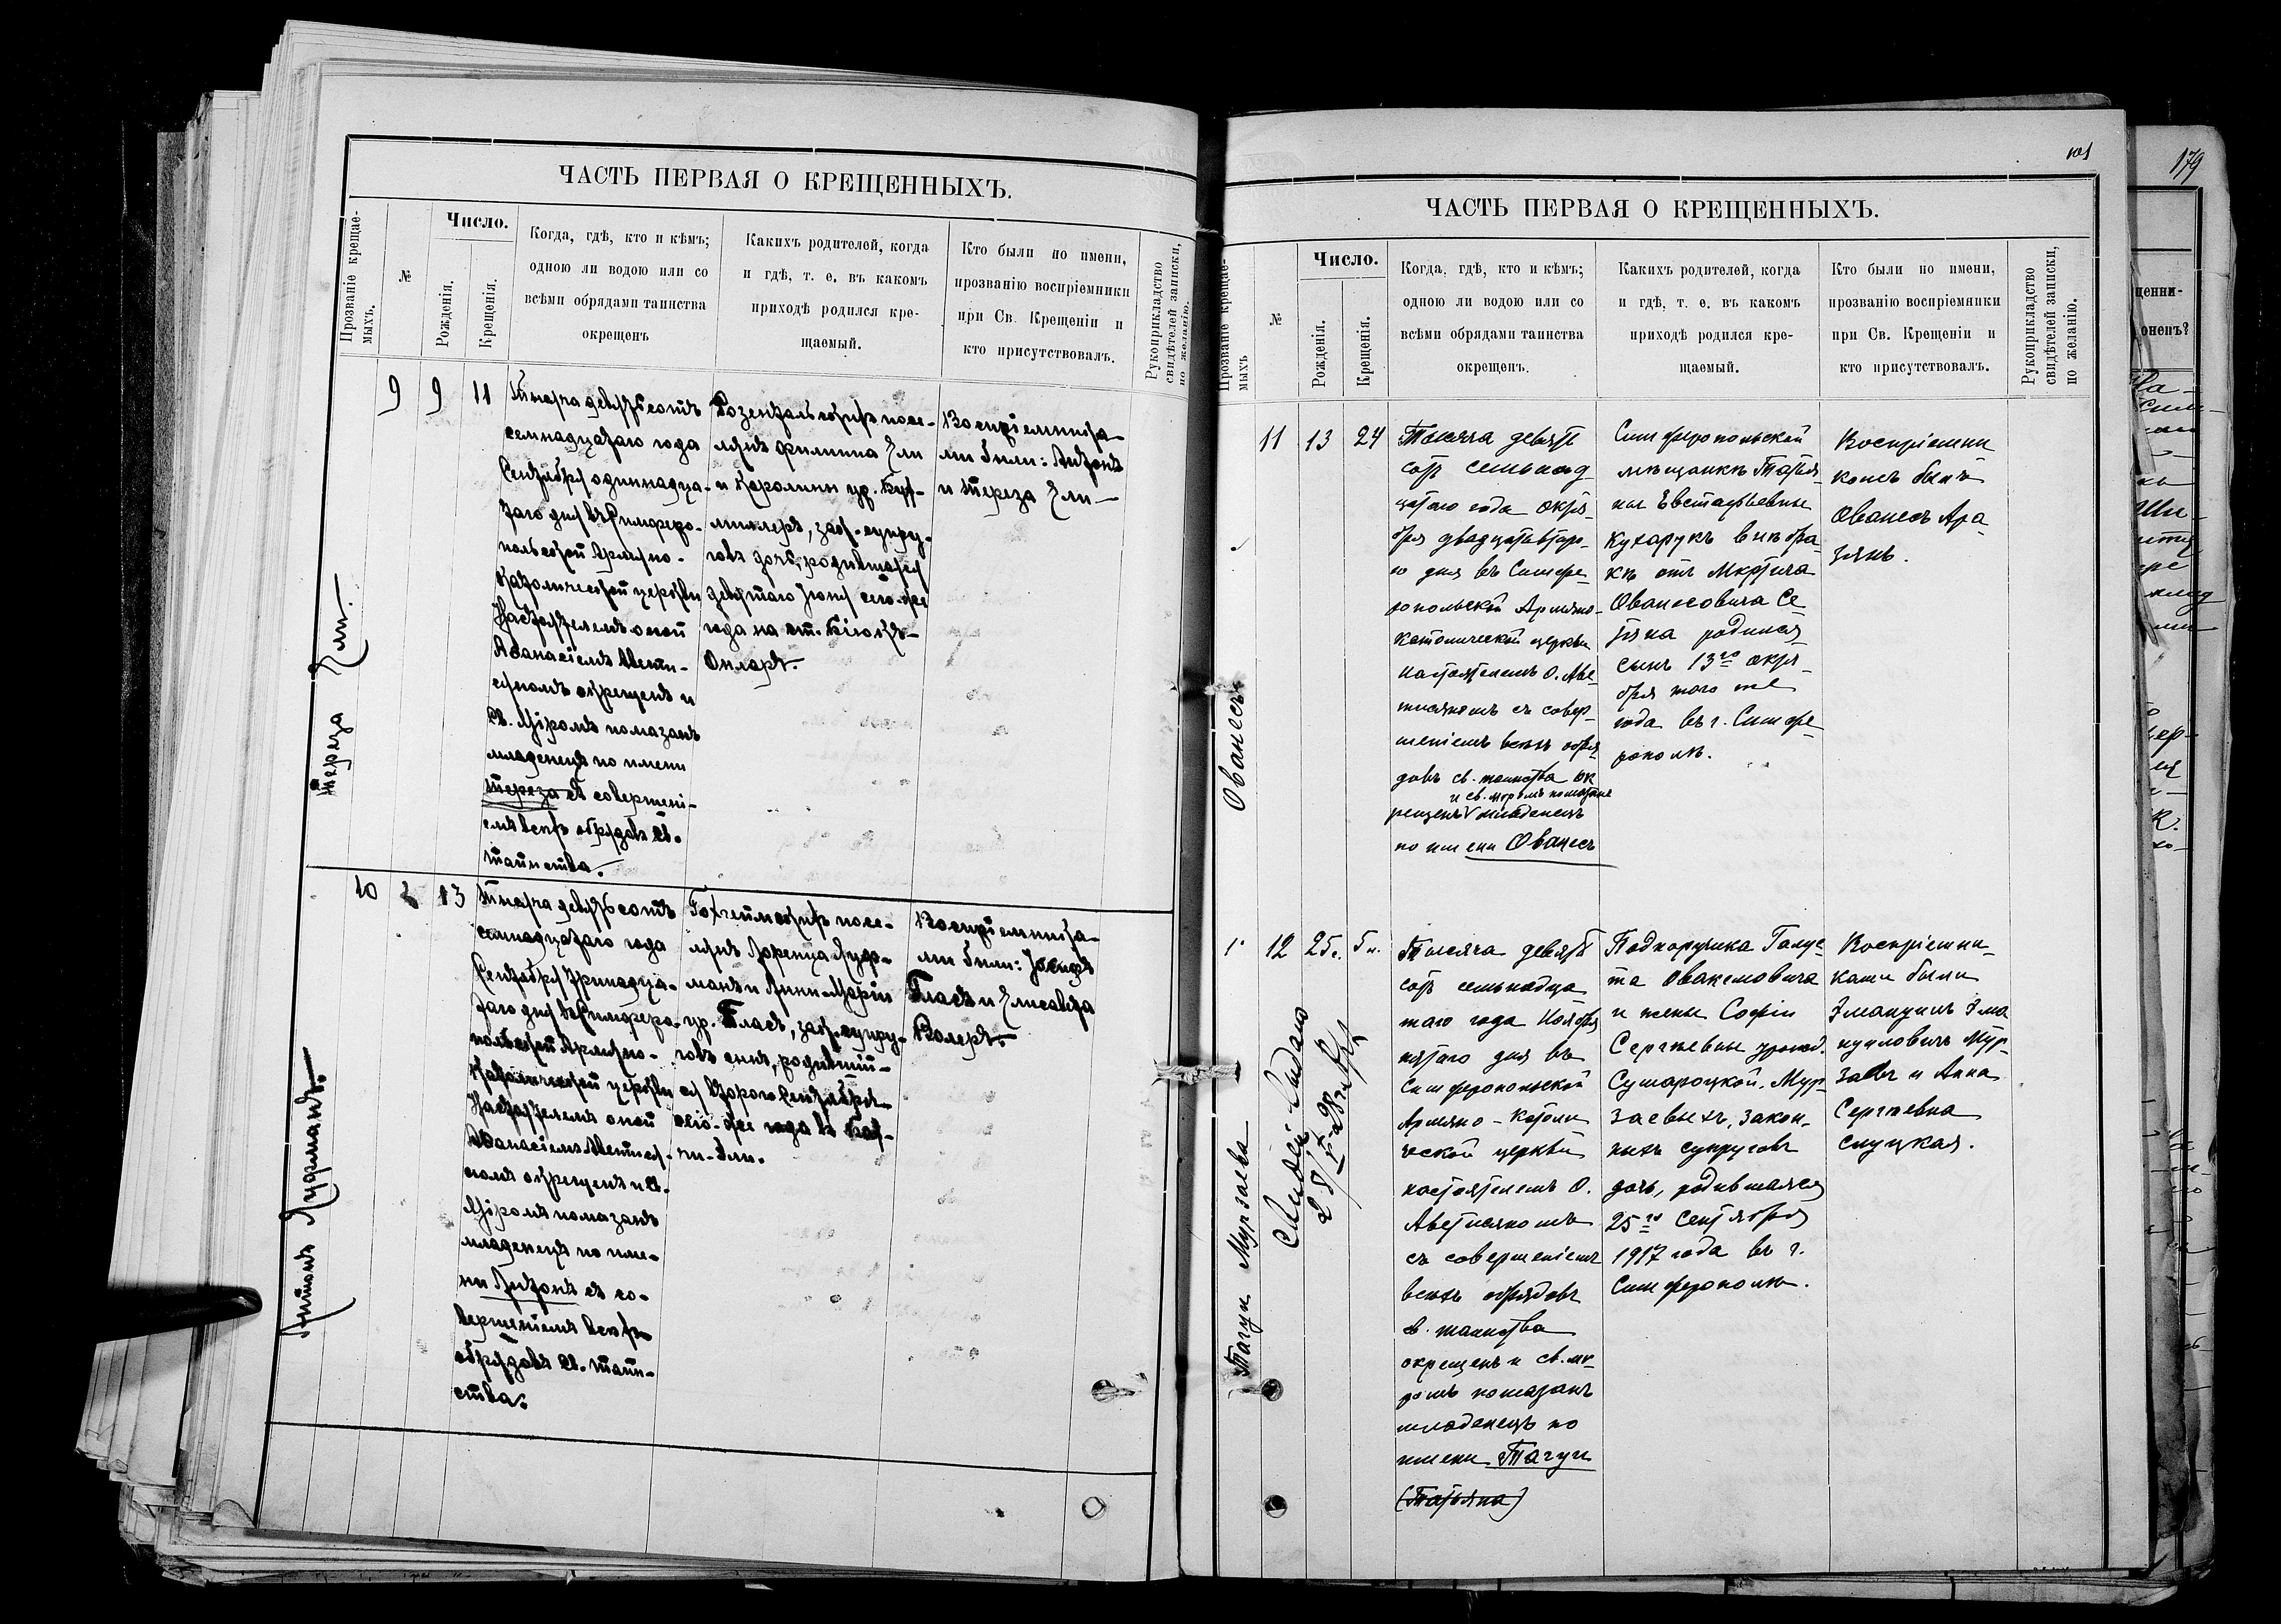 ЧАСТЬ ПЕРВАЯ О КРЕЩЕННЫХЪ.
Прозваніе крещае-
мыхъ.
№
Число.
Рожденія.
Крещенія.
Когда, гдѣ, кто и кѣмъ;
одною ли водою или со
всѣми обрядами таинства
окрещенъ
Какихъ родителей, когда
и гдѣ, т. е. въ какомъ
приходѣ родился кре-
щаемый.
Кто были по имени,
прозванію воспріемники
при Св. Крещеніи и
кто присутствовалъ.
Рукоприкладство
свидѣтелей записки,
по желанію.
Тереза Ели.
9
9
11
Тысяча девятьсотъ
семнадцатаго года
Сентября одиннадца-
таго дня въ Симферо-
польской Армяно-
Католической церкви
Настоятелемъ оной
Аѳанасіемъ Авети-
сяномъ окрещенъ и
св. Мѵромъ помазанъ
младенецъ по имени
Тереза съ совершені-
емъ всѣхъ обрядовъ св.
таинства.
Розентальскихъ посе-
лянъ Филиппа Ели
и Каролины ур.
зак. супру-
говъ дочь, родившаяся
девятаго Іюня сего-же
года на ст. Біюкъ-
Онларъ.
Воспріемника-
ми были: Антонъ
и Тереза Ели
Антонъ Луфманъ.
10
2
13
Тысяча девятьсотъ
семнадцатаго года
Сентября тринадца-
таго дня въ Симферо-
польской Армяно-
Католической церкви
Настоятелемъ оной
Аѳанасіемъ Аветися-
номъ окрещенъ и св.
Мѵромъ помазанъ
младенецъ по име-
ни Антонъ съ со-
вершеніемъ всѣхъ
обрядовъ св. таин-
ства.
посе-
лянъ Лоренца Луф-
манъ и Анны-Маріи
ур. Гласъ, зак. супру-
говъ сынъ, родившій-
ся второго Сентября
сего-же года въ
Воспріемника-
ми были: Іосифъ
Гласъ и Елисавета
Келеръ.
101
ЧАСТЬ ПЕРВАЯ О КРЕЩЕННЫХЪ.
Прозваніе крещае-
мыхъ
№
Число.
Рожденія.
Крещенія.
Когда, гдѣ, кто и кѣмъ;
одною ли водою или со
всѣми обрядами таинства
окрещенъ.
Какихъ родителей, когда
и гдѣ, т. е. въ какомъ
приходѣ родился кре-
щаемый.
Кто были по имени,
прозванію воспріемники
при Св. Крещеніи и
кто присутствовалъ.
Рукоприкладство
свидѣтелей записки,
по желанію.
Ованесъ
11
13
24
Тысяча девять
сотъ семьнад
цатаго года октя-
бря двадцатьвтор-
го дня въ Симфе-
ропольской Армяно-
католической церкви
настоятелемъ О. Аве-
тисяномъ съ совер-
шеніемъ всѣхъ обря
довъ св. таинства ок
и св. мѵромъ помазанъ
рещенъ младенецъ
по имени Ованесъ
Симферопольской
мѣщанкѣ Татья-
ны Евстафьевны
Кухарукъ внѣ бра-
кѣ отъ Мкртича
Ованесовича Се
тяна родился
сынъ 13го октя-
бря того же
года въ г. Симфе-
рополѣ.
Воспріемни
комъ былъ
Ованесъ Ара
зянъ.
Тагуи Мурзаева
12
25 с.
5 н.
Тысяча девять
сотъ семьнадца
таго года Ноября
пятаго дня въ
Симферопольской
Армяно-Католи
ческой церкви
настоятелемъ О.
Аветисяномъ
съ совершеніемъ
всѣхъ обрядовъ
св. таинства
окрещенъ и св. мѵ-
ромъ помазанъ
младенецъ по
имени Тагуи
(Татьяна)
Подпоручика Галус-
та Овакемовича
и жены Софіи
Сергѣевны урожд.
Сумароцкой, Мур
заевыхъ, закон-
ныхъ супруговъ
дочь, родившаяся
25го Сентября
1917 года въ г.
Симферополѣ.
Воспріемни-
ками были
Эмануилъ Эма
нуиловичъ Мур-
заевъ и Анна
Сергѣевна
Слуцкая.
179